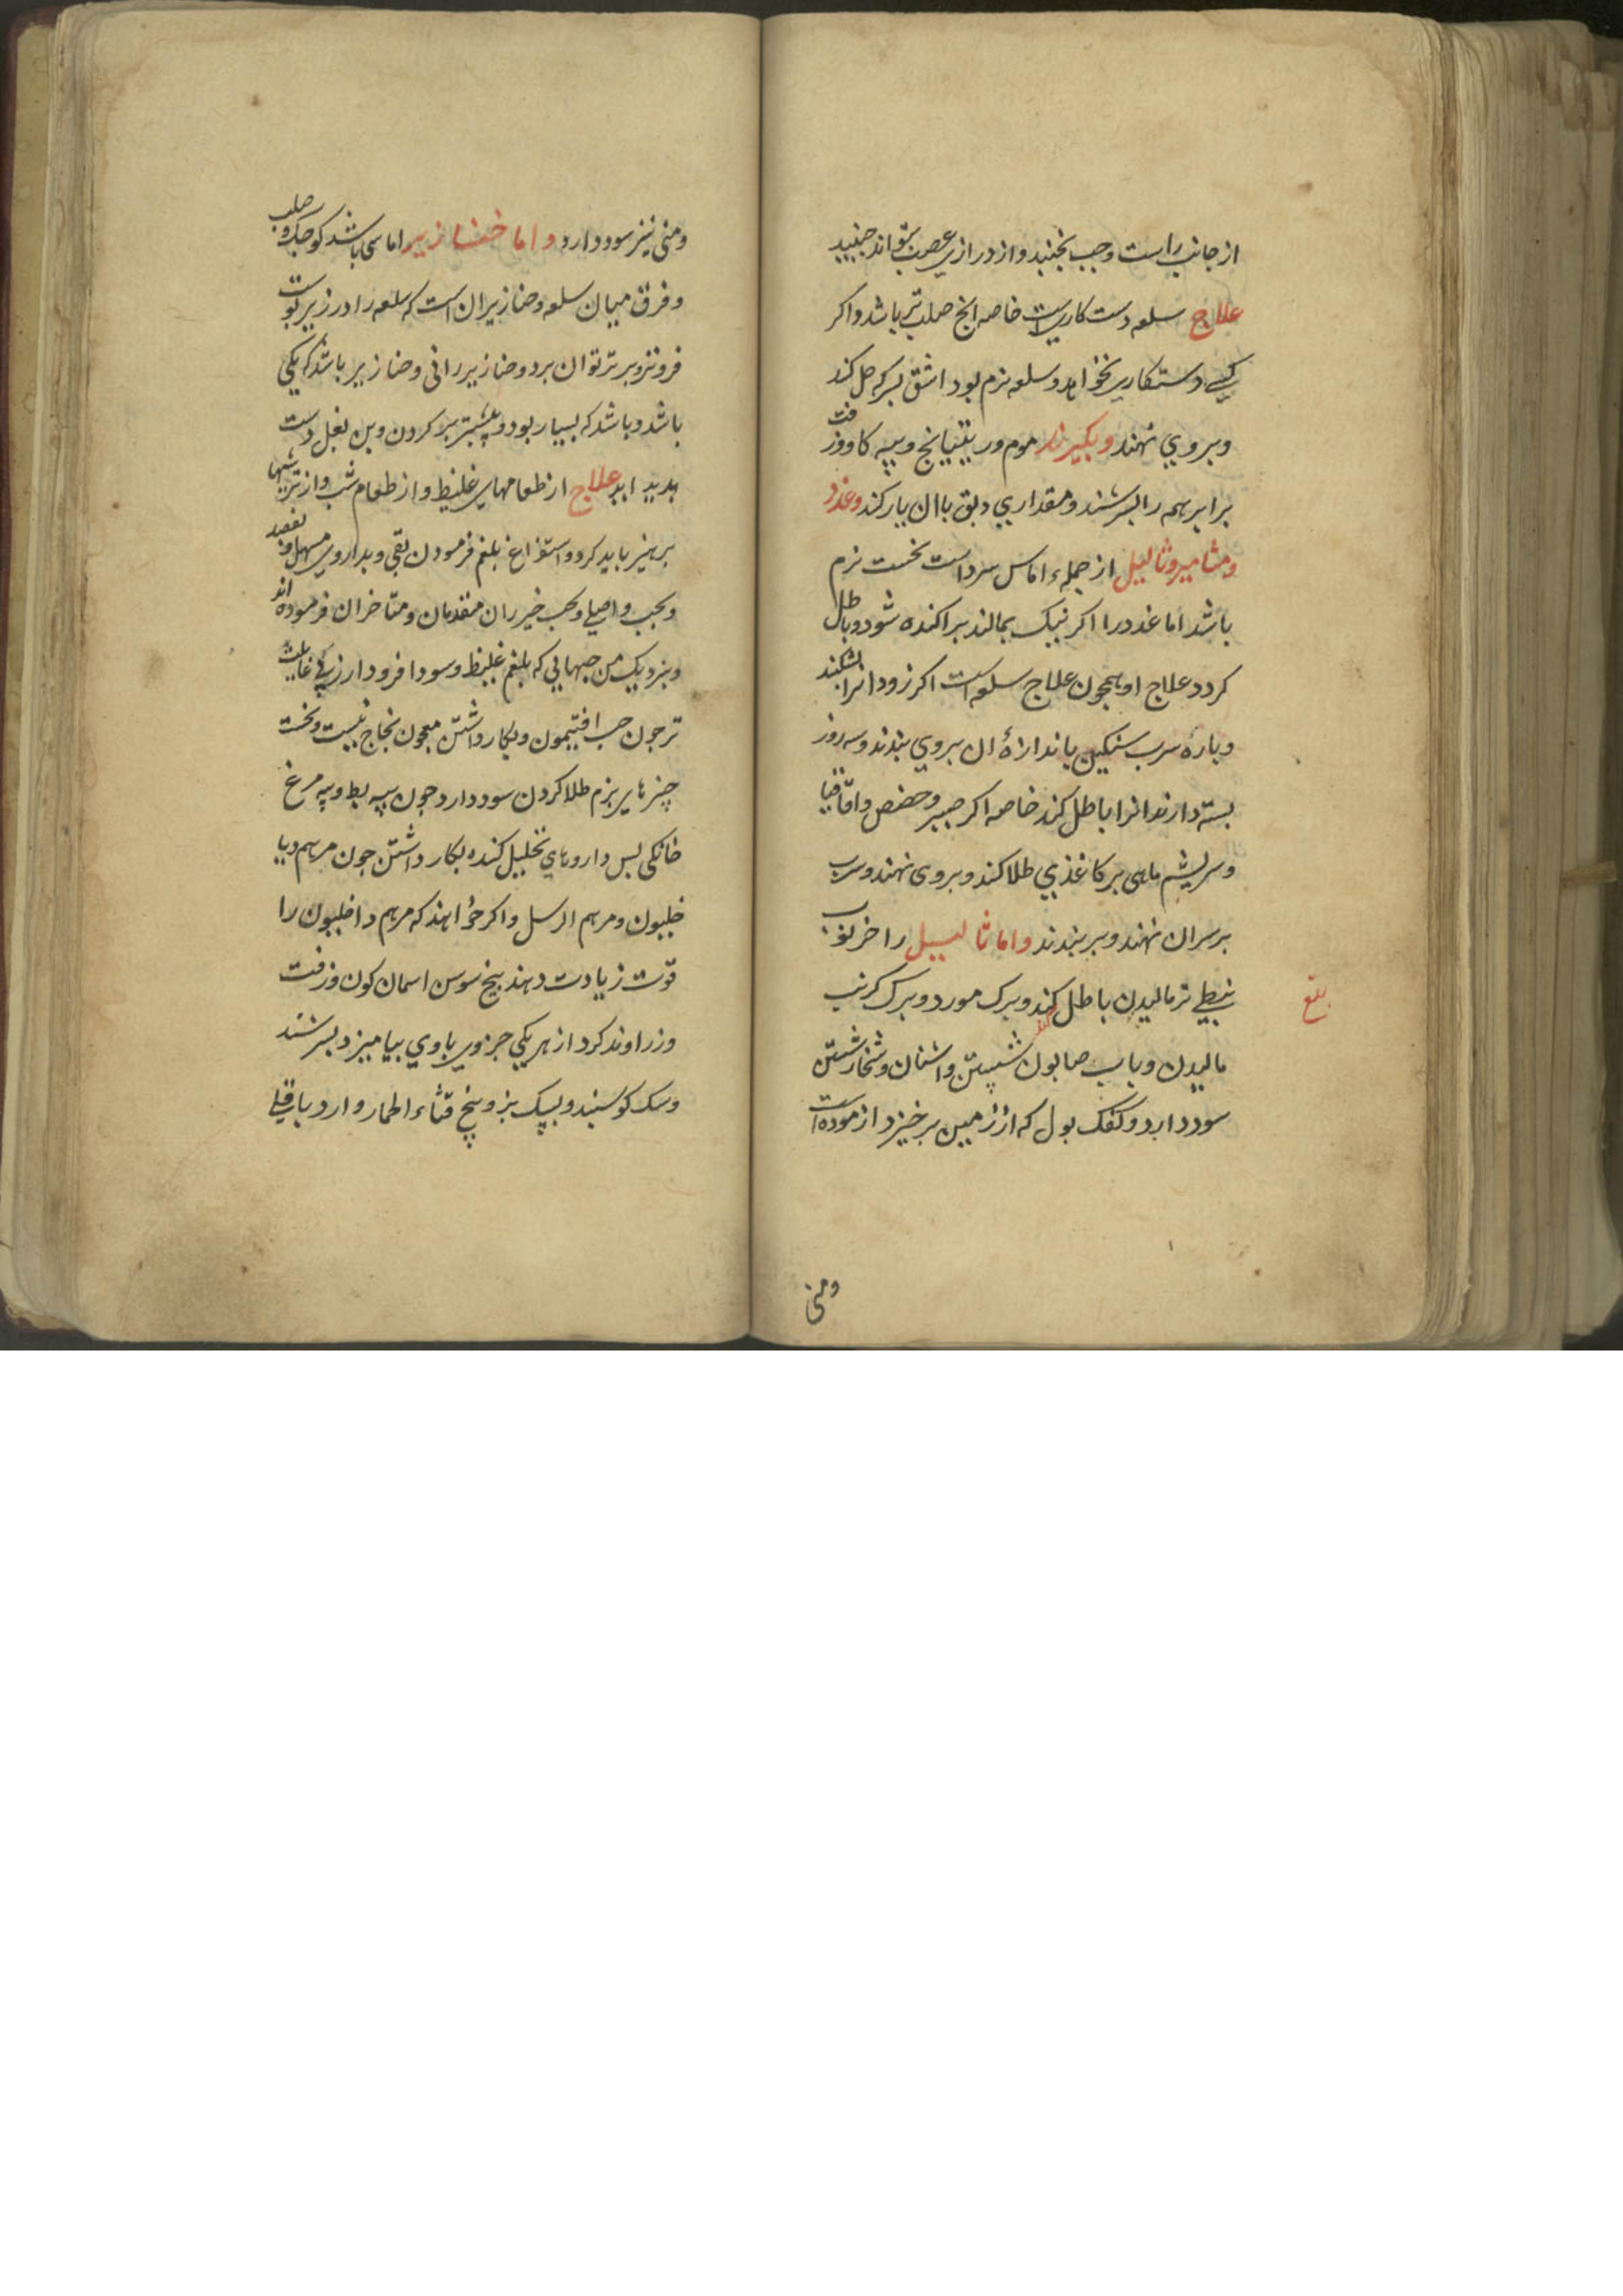 از جانب راست و چپ بجنبد و از درازی عصب نتواند جنبید
علاج سلعه دست کاریست خاصه انج صلب تر باشد و اکر
کسی دستکاری نخواهد و سلعه نرم بود اشق بسرکه حل کند
و بروی نهند و بکیرند موم و ریتیانج و پیه کاو و زفت
برابر همه را بسرشند و مقداری دبق باان یار کند و غدد
و مثامیر و ثالیل از جمله اماس سرد است نخست نرم
باشد اما غدد را اکر نیک بمالند براکنده شود و باطل
کردد علاج او همچون علاج سلعه است اکر زود انرا بشکنند
و باره سرب سنکین باندازهٔ ان بروی بندند و سه روز
بسته دارند انرا باطل کند خاصه اکر صبر و حضض و اقاقیا
و سریشم ماهی بر کاغذی طلا کند و بروی نهند و سرب
بر سر ان نهند و بر بندند و اما ثالیل را خرنوب
نبطی تر مالیدن باطل کند و برک مورد و برک کرنب
مالیدن و باب صابون شستن و اشنان و شخار شستن
سود دارد و کفک بول که از زمین برخیزد ازموده است
ومنی
و منی نیز سود دارد و اما خنازیر اماسی باشد کوجک و صلب
و فرق میان سلعه و خنازیر ان است که سلعه را در زیر پوست
فروتر و برتر توان برد و خنازیر را نی و خنازیر باشد که یکی
باشد و باشد که بسیار بود و بیشتر بر کردن و بن بغل دست
بدید اید علاج از طعامهای غلیظ و از طعام شب و از ترشیها
برهیز باید کرد و استفراغ بلغم فرمودن بقی و بداروی مسهل و بفصد
و بحب واصلی و بحب خیرران متقدمان و متاخران فرموده اند
و بنزدیک من حبهایی که بلغم غلیظ و سودا فرود ارد
تر جون حب افتیمون و بکار داشتن معجون نجاح نیست و نخست
چیزهای نرم طلا کردن سود دارد جون پیه بط و پیه مرغ
خانکی بس داروهای تحلیل کننده بکار داشتن جون مرهم دیا
خلیون و مرهم الرسل و اکر خواهند که مرهم داخلیون را
قوت زیادت دهند بیخ سوسن اسمان کون و زفت
و زراوند کرد از هر یکی جزوی باوی بیامیزد بسرشند
و سک کوسبند و بشک بز و بیخ قثاء الحمار و ارد باقلی